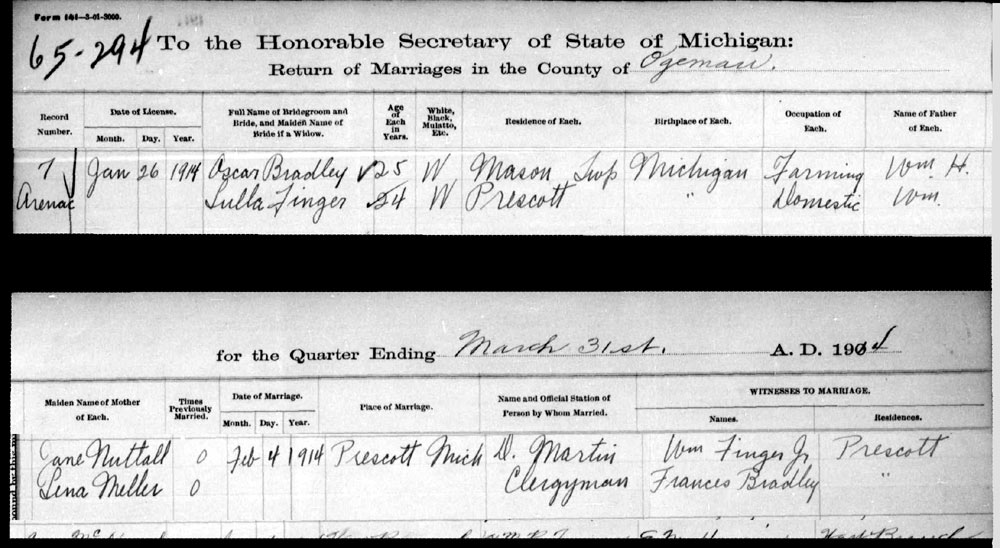 Form 141—3-01-3000.
65-294
To the Honorable Secretary of State of Michigan:
Return of Marriages in the County of Ogemaw.
Record Number. Date of License. Month. Day. Year. Full Name of Bridegroom and Bride, and Maiden Name of Bride if a Widow. Age of Each in Years. White, Black, Mulatto, Etc. Residence of Each. Birthplace of Each. Occupation of Each. Name of Father of Each.
7 Jan 26 1914 Oscar Bradley 25 W Mason Twp Michigan Farming Wm. H.
Arenac Lulla Finger 24 W Prescott " Domestic Wm.
for the Quarter Ending March 31st. A. D. 1914
Maiden Name of Mother of Each. Times Previously Married. Date of Marriage. Month. Day. Year. Place of Marriage. Name and Official Station of Person by Whom Married. WITNESSES TO MARRIAGE. Names. Residences.
Jane Nuttall 0 Feb 4 1914 Prescott Mich D. Martin Wm Finger Jr Prescott
Lena Meller 0 Clergyman Frances Bradley "